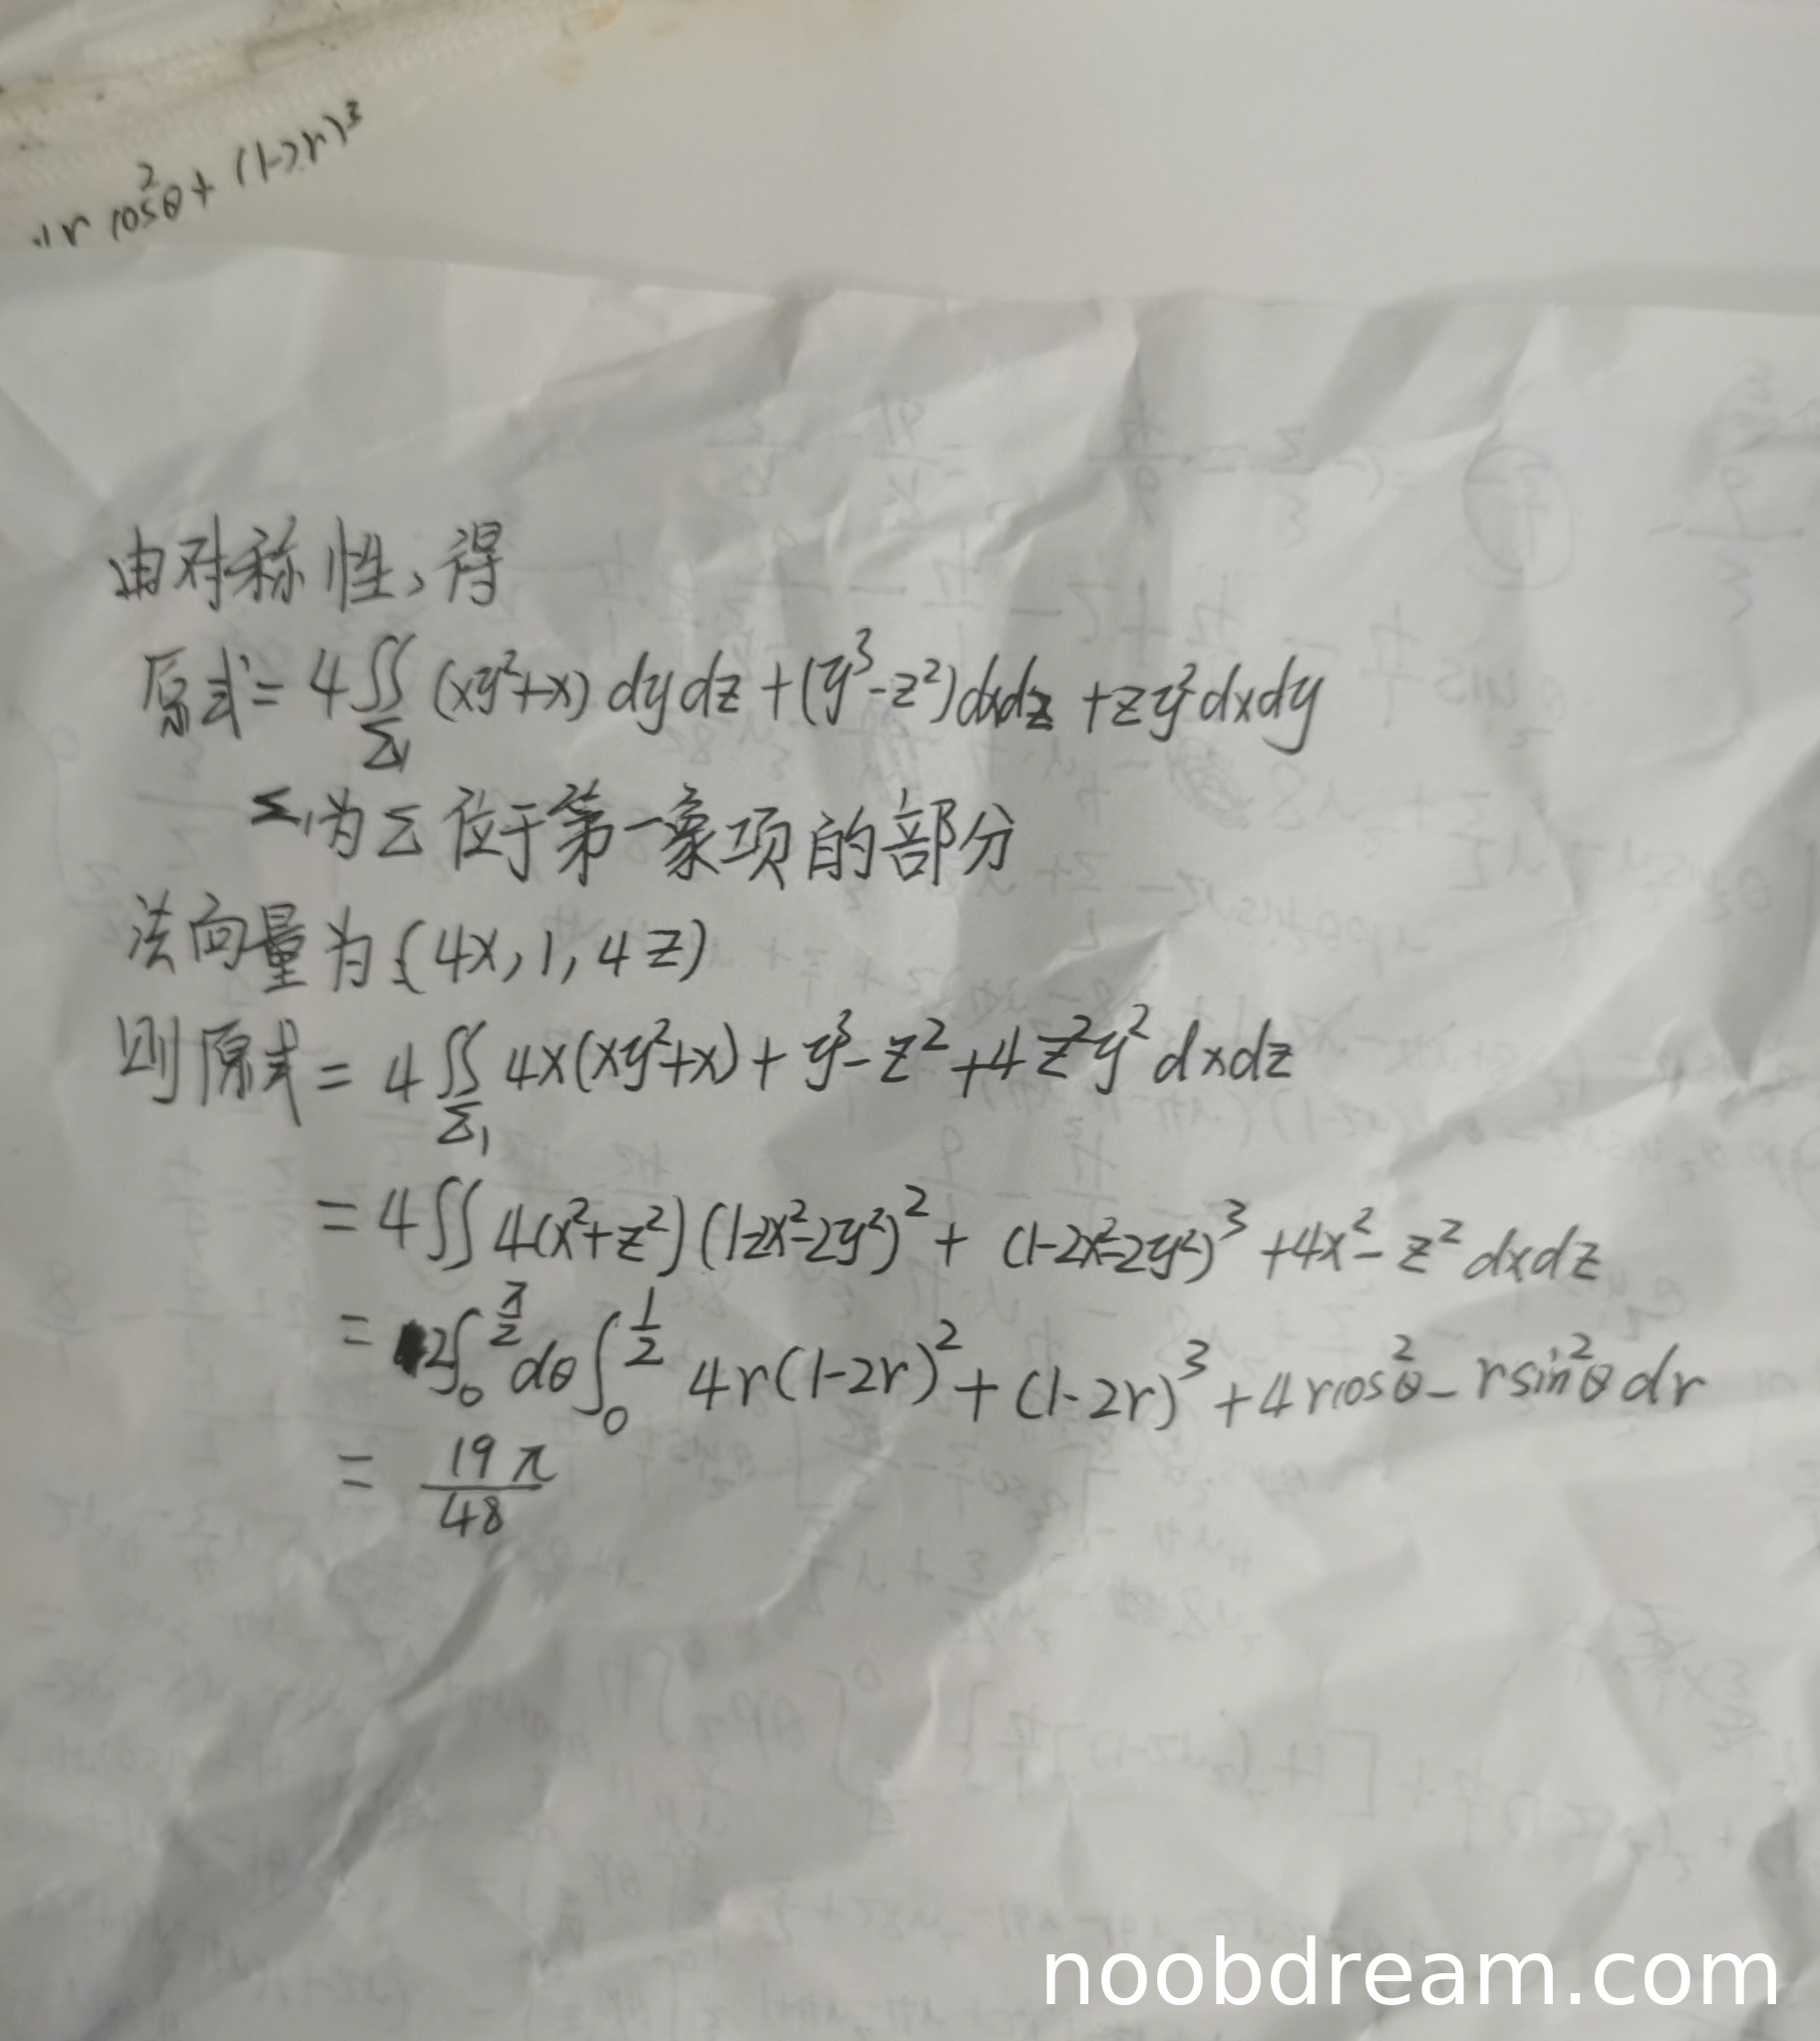 r cos²θ + (1-2r)³
由对称性,得
原式 = 4∬_Σ₁ (xy²+x) dydz + (y³-z²)dxdz + zy²dxdy
Σ₁为Σ位于第一象项的部分
法向量为(4x, 1, 4z)
则原式 = 4∬_Σ₁ 4x(xy²+x) + y³ - z² + 4z²y² dxdz
= 4∬ 4(x²+z²)(1-2x²-2y²)² + (1-2x²-2y²)³ + 4x² - z² dxdz
= 2∫₀^(π/2) dθ ∫₀^(1/2) 4r(1-2r)² + (1-2r)³ + 4rcos²θ - rsin²θ dr
= 19π/48
noobdream.com